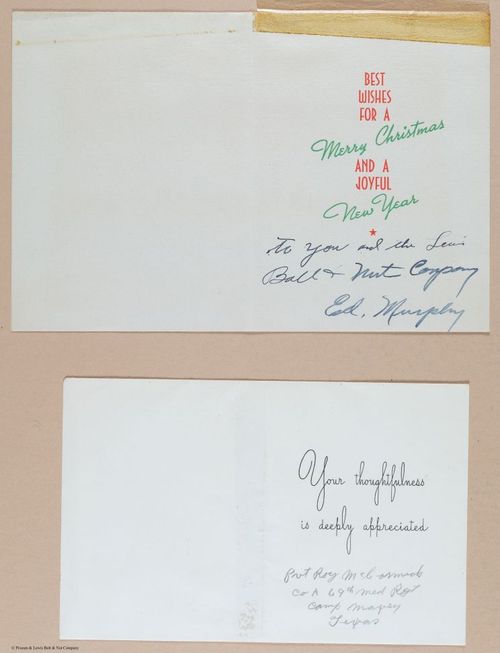 BEST
WISHES
FOR A
Merry Christmas
AND A
JOYFUL
New Year
to you and the Lewis
Ball & Nut Company
Ed. Murphy
Your thoughtfulness
is deeply appreciated
Pvt Roy McCormick
Co A 69th Med Rgt
Camp Maxey
Texas
© Provam & Lewis Bolt & Nut Company